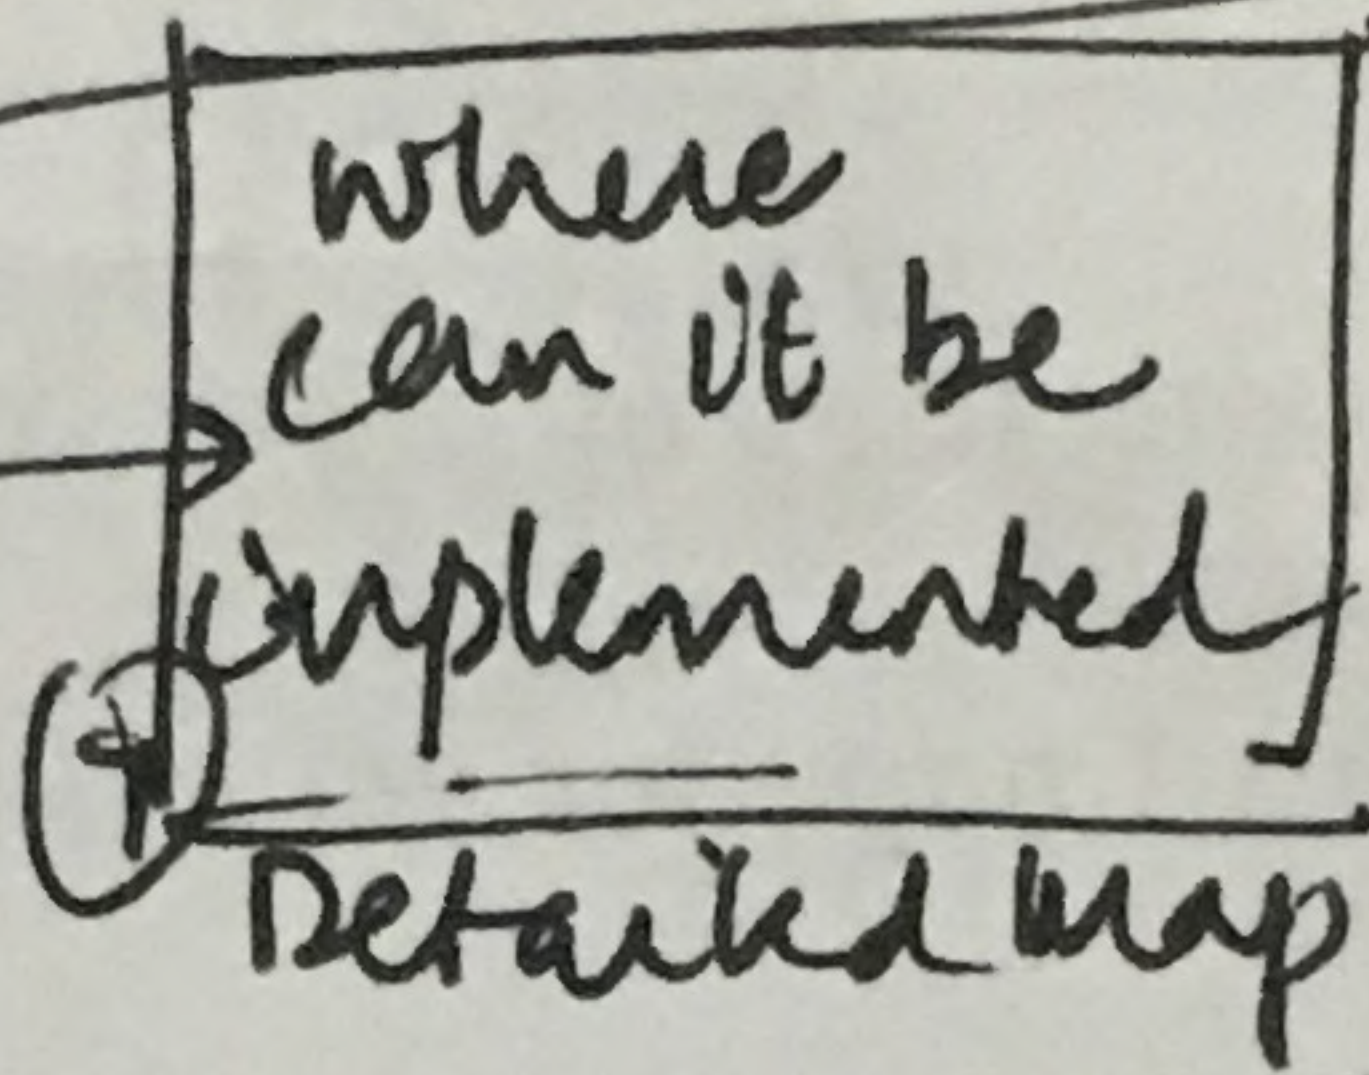 where
can it be
implemented
Detailed map